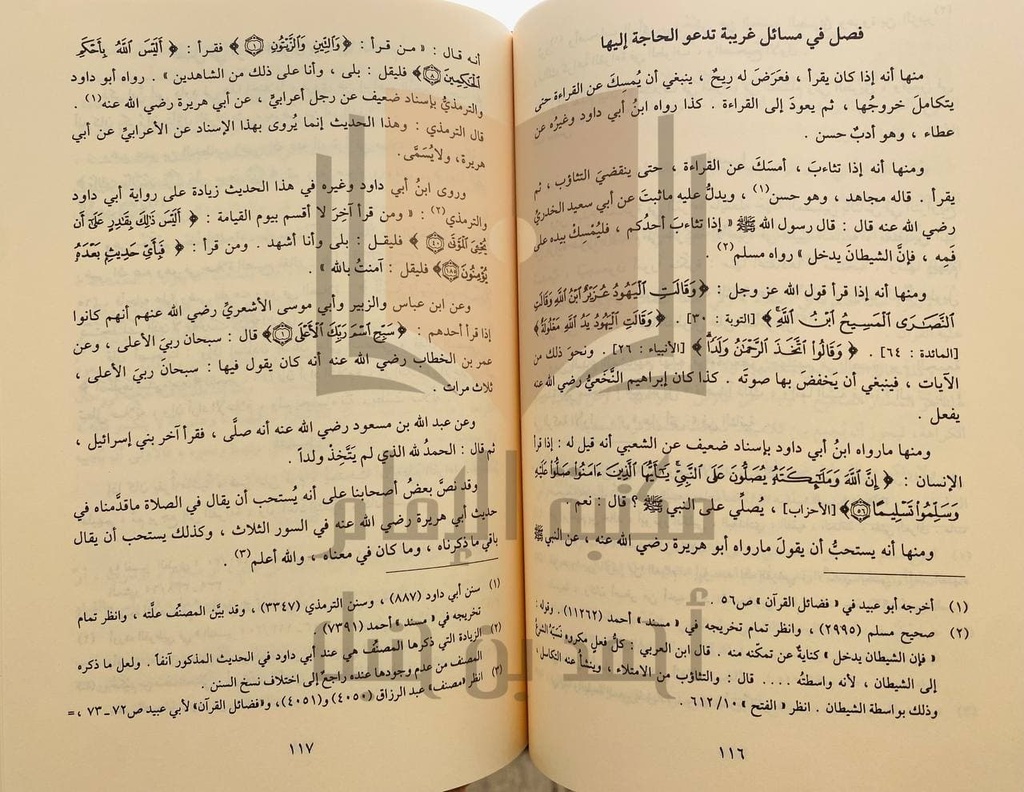 فصل في مسائل غريبة تدعو الحاجة إليها
منها أنه إذا كان يقرأ ، فعَرَضَ له رِيحٌ ، ينبغي أن يُمسِكَ عن القراءة حتى
يتكاملَ خروجُها ، ثم يعودَ إلى القراءة . كذا رواه ابنُ أبي داود وغيرُه عن
عطاء ، وهو أدبٌ حسن .
ومنها أنه إذا تثاءبَ ، أمسَكَ عن القراءة ، حتى ينقضيَ التثاؤب ، ثم
يقرأ . قاله مجاهد ، وهو حسن(١) ، ويدلُّ عليه ماثبتَ عن أبي سعيد الخدريّ
رضي الله عنه قال : قال رسول الله ﷺ « إذا تثاءبَ أحدُكم ، فليُمْسِكْ بيده على
فَمِه ، فإنَّ الشيطانَ يدخل » رواه مسلم(٢) .
ومنها أنه إذا قرأ قول الله عز وجل : ﴿ وَقَالَتِ الْيَهُودُ عُزَيْرٌ ابْنُ اللَّهِ وَقَالَتِ
النَّصَارَى الْمَسِيحُ ابْنُ اللَّهِ ﴾ [التوبة : ٣٠] . ﴿ وَقَالَتِ الْيَهُودُ يَدُ اللَّهِ مَغْلُولَةٌ ﴾
[المائدة : ٦٤] . ﴿ وَقَالُوا اتَّخَذَ الرَّحْمَٰنُ وَلَدًا ﴾ [الأنبياء : ٢٦] . ونحوَ ذلك من
الآيات ، فينبغي أن يَخفضَ بها صوتَه . كذا كان إبراهيم النَّخَعيُّ رضي الله عنه
يفعل .
ومنها مارواه ابنُ أبي داود بإسناد ضعيف عن الشعبي أنه قيل له : إذا قرأ
الإنسان : ﴿ إِنَّ اللَّهَ وَمَلَائِكَتَهُ يُصَلُّونَ عَلَى النَّبِيِّ يَا أَيُّهَا الَّذِينَ ءَامَنُوا صَلُّوا عَلَيْهِ
وَسَلِّمُوا تَسْلِيمًا ٥٦ ﴾ [الأحزاب] ، يُصلِّي على النبي ﷺ ؟ قال : نعم .
ومنها أنه يستحبُّ أن يقولَ مارواه أبو هريرة رضي الله عنه ، عن النبي ﷺ
(١) أخرجه أبو عبيد في « فضائل القرآن » ص٥٦ .
(٢) صحيح مسلم (٢٩٩٥) ، وانظر تمام تخريجه في « مسند » أحمد (١١٢٦٢) . وقوله :
« فإن الشيطان يدخل » كنايةٌ عن تمكنه منه . قال ابن العربي : كلُّ فعلٍ مكروهٍ نَسَبَهُ الشرعُ
إلى الشيطان ، لأنه واسطتُه .... قال : والتثاؤب من الامتلاء ، وينشأُ عنه التكاسل ،
وذلك بواسطة الشيطان . انظر « الفتح » ٦١٢/١٠ .
١١٦
أنه قال : « من قرأ : ﴿ وَالتِّينِ وَالزَّيْتُونِ ١ ﴾ فقرأ : ﴿ أَلَيْسَ اللَّهُ بِأَحْكَمِ
الْحَاكِمِينَ ٨ ﴾ فليقل : بلى ، وأنا على ذلك من الشاهدين » . رواه أبو داود
والترمذيُّ بإسناد ضعيف عن رجل أعرابيِّ ، عن أبي هريرة رضي الله عنه(١) .
قال الترمذي : وهذا الحديث إنما يُروى بهذا الإسناد عن الأعرابيِّ عن أبي
هريرة، ولايُسَمَّى .
وروى ابنُ أبي داود وغيره في هذا الحديث زيادة على رواية أبي داود
والترمذي(٢) : « ومن قرأ آخرَ لا أقسم بيوم القيامة : ﴿ أَلَيْسَ ذَٰلِكَ بِقَادِرٍ عَلَىٰ أَن
يُحْيِيَ الْمَوْتَىٰ ٤٠ ﴾ فليقل : بلى وأنا أشهد . ومن قرأ : ﴿ فَبِأَيِّ حَدِيثٍ بَعْدَهُ
يُؤْمِنُونَ ١٨٥ ﴾ فليقل : آمنتُ بالله » .
وعن ابن عباس والزبير وأبي موسى الأشعريِّ رضي الله عنهم أنهم كانوا
إذا قرأ أحدهم : ﴿ سَبِّحِ اسْمَ رَبِّكَ الْأَعْلَى ١ ﴾ قال : سبحان ربيَ الأعلى ، وعن
عمر بن الخطاب رضي الله عنه أنه كان يقول فيها : سبحانَ ربيَ الأعلى ،
ثلاث مرات .
وعن عبد الله بن مسعود رضي الله عنه أنه صلَّى ، فقرأ آخر بني إسرائيل ،
ثم قال : الحمدُ لله الذي لم يَتَّخِذْ ولداً .
وقد نصَّ بعضُ أصحابنا على أنه يُستحب أن يقال في الصلاة ماقدَّمناه في
حديث أبي هريرة رضي الله عنه في السور الثلاث ، وكذلك يستحب أن يقال
باقي ما ذكرناه ، وما كان في معناه ، والله أعلم(٣) .
(١) سنن أبي داود (٨٨٧) ، وسنن الترمذي (٣٣٤٧) ، وقد بيَّن المصنِّف علَّته ، وانظر تمام
تخريجه في « مسند » أحمد (٧٣٩١) .
(٢) الزيادة التي ذكرها المصنِّفُ هي عند أبي داود في الحديث المذكور آنفاً . ولعل ما ذكره
المصنف من عدم وجودها عنده راجعٌ إلى اختلاف نسخ السنن .
(٣) انظر «مصنف» عبد الرزاق (٤٠٥٠) و(٤٠٥١)، و«فضائل القرآن» لأبي عبيد ص٧٢-٧٣ ، =
١١٧
مكتبة الإمام
أحمد بن حنبل